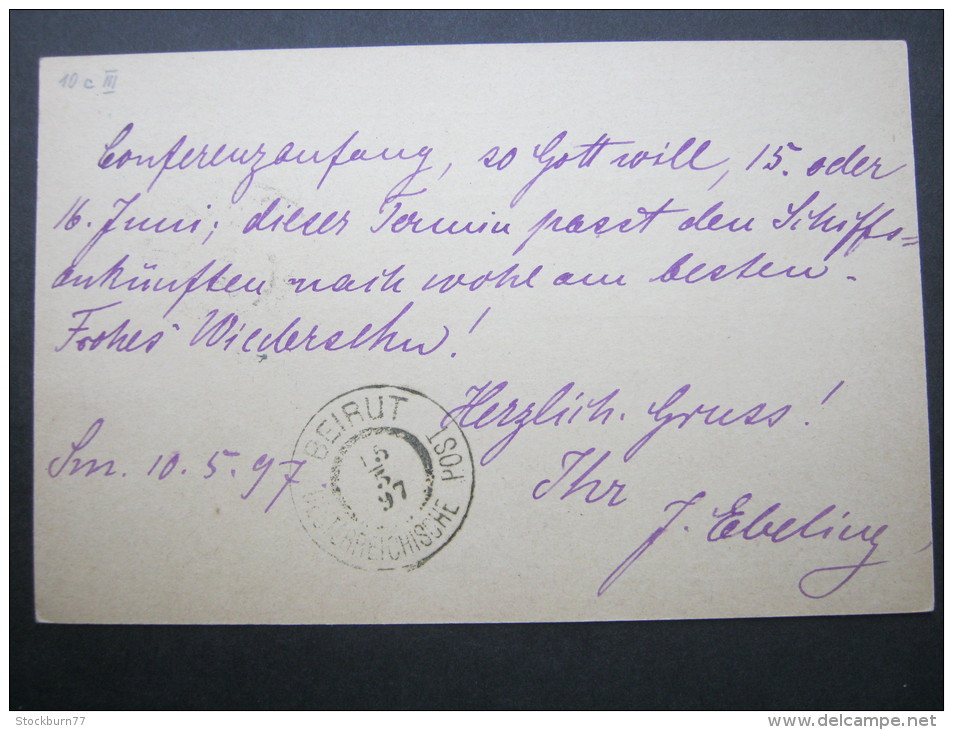 10 c III
Conferenzanfang, so Gott will, 15. oder
16. Juni; dieser Termin passt den Schiffs=
ankünften nach wohl am besten.
Frohes Wiedersehn!
Herzlich. Gruss!
Sm. 10.5.97
Ihr
J. Ebeling
BEIRUT
OESTERREICHISCHE POST
15
5
97
Stockburn77
www.delcampe.net